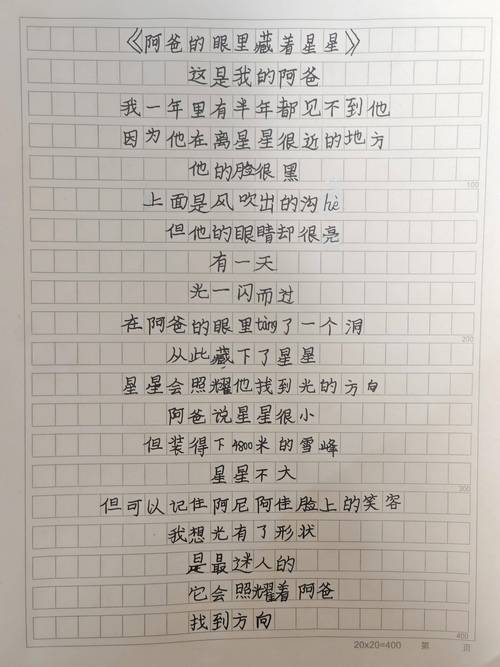 《阿爸的眼里藏着星星》
这是我的阿爸
我一年里有半年都见不到他
因为他在离星星很近的地方
他的脸很黑
100
上面是风吹出的沟hè
但他的眼睛却很亮
有一天
光一闪而过
在阿爸的眼里tàng了一个洞
200
从此藏下了星星
星星会照耀他找到光的方向
阿爸说星星很小
但装得下4800米的雪峰
星星不大
300
但可以记住阿尼阿佳脸上的笑容
我想光有了形状
是最迷人的
它会照耀着阿爸
找到方向
400
20×20=400 第 页